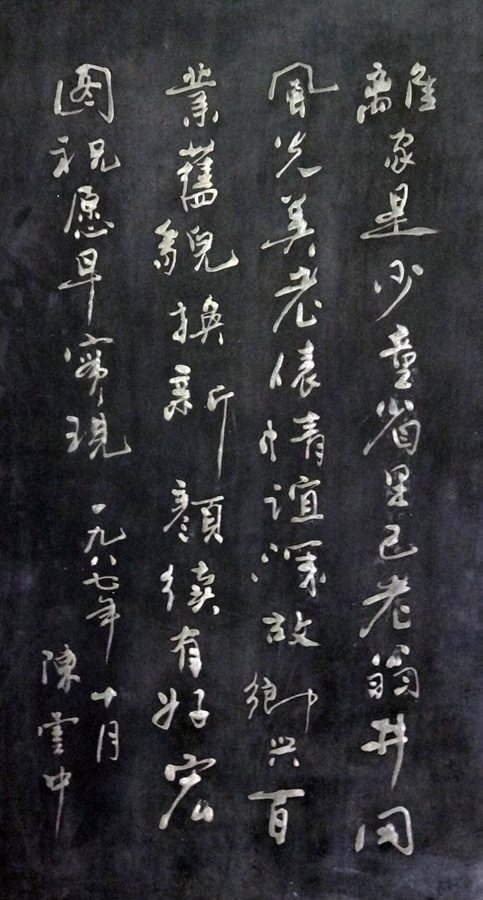 離家是少童省里已老翁井岡
風光美老俵情谊深故鄉兴百
業舊貌換新顏續有好宏
图祝愿早實現
一九八七年十月
陳雲中